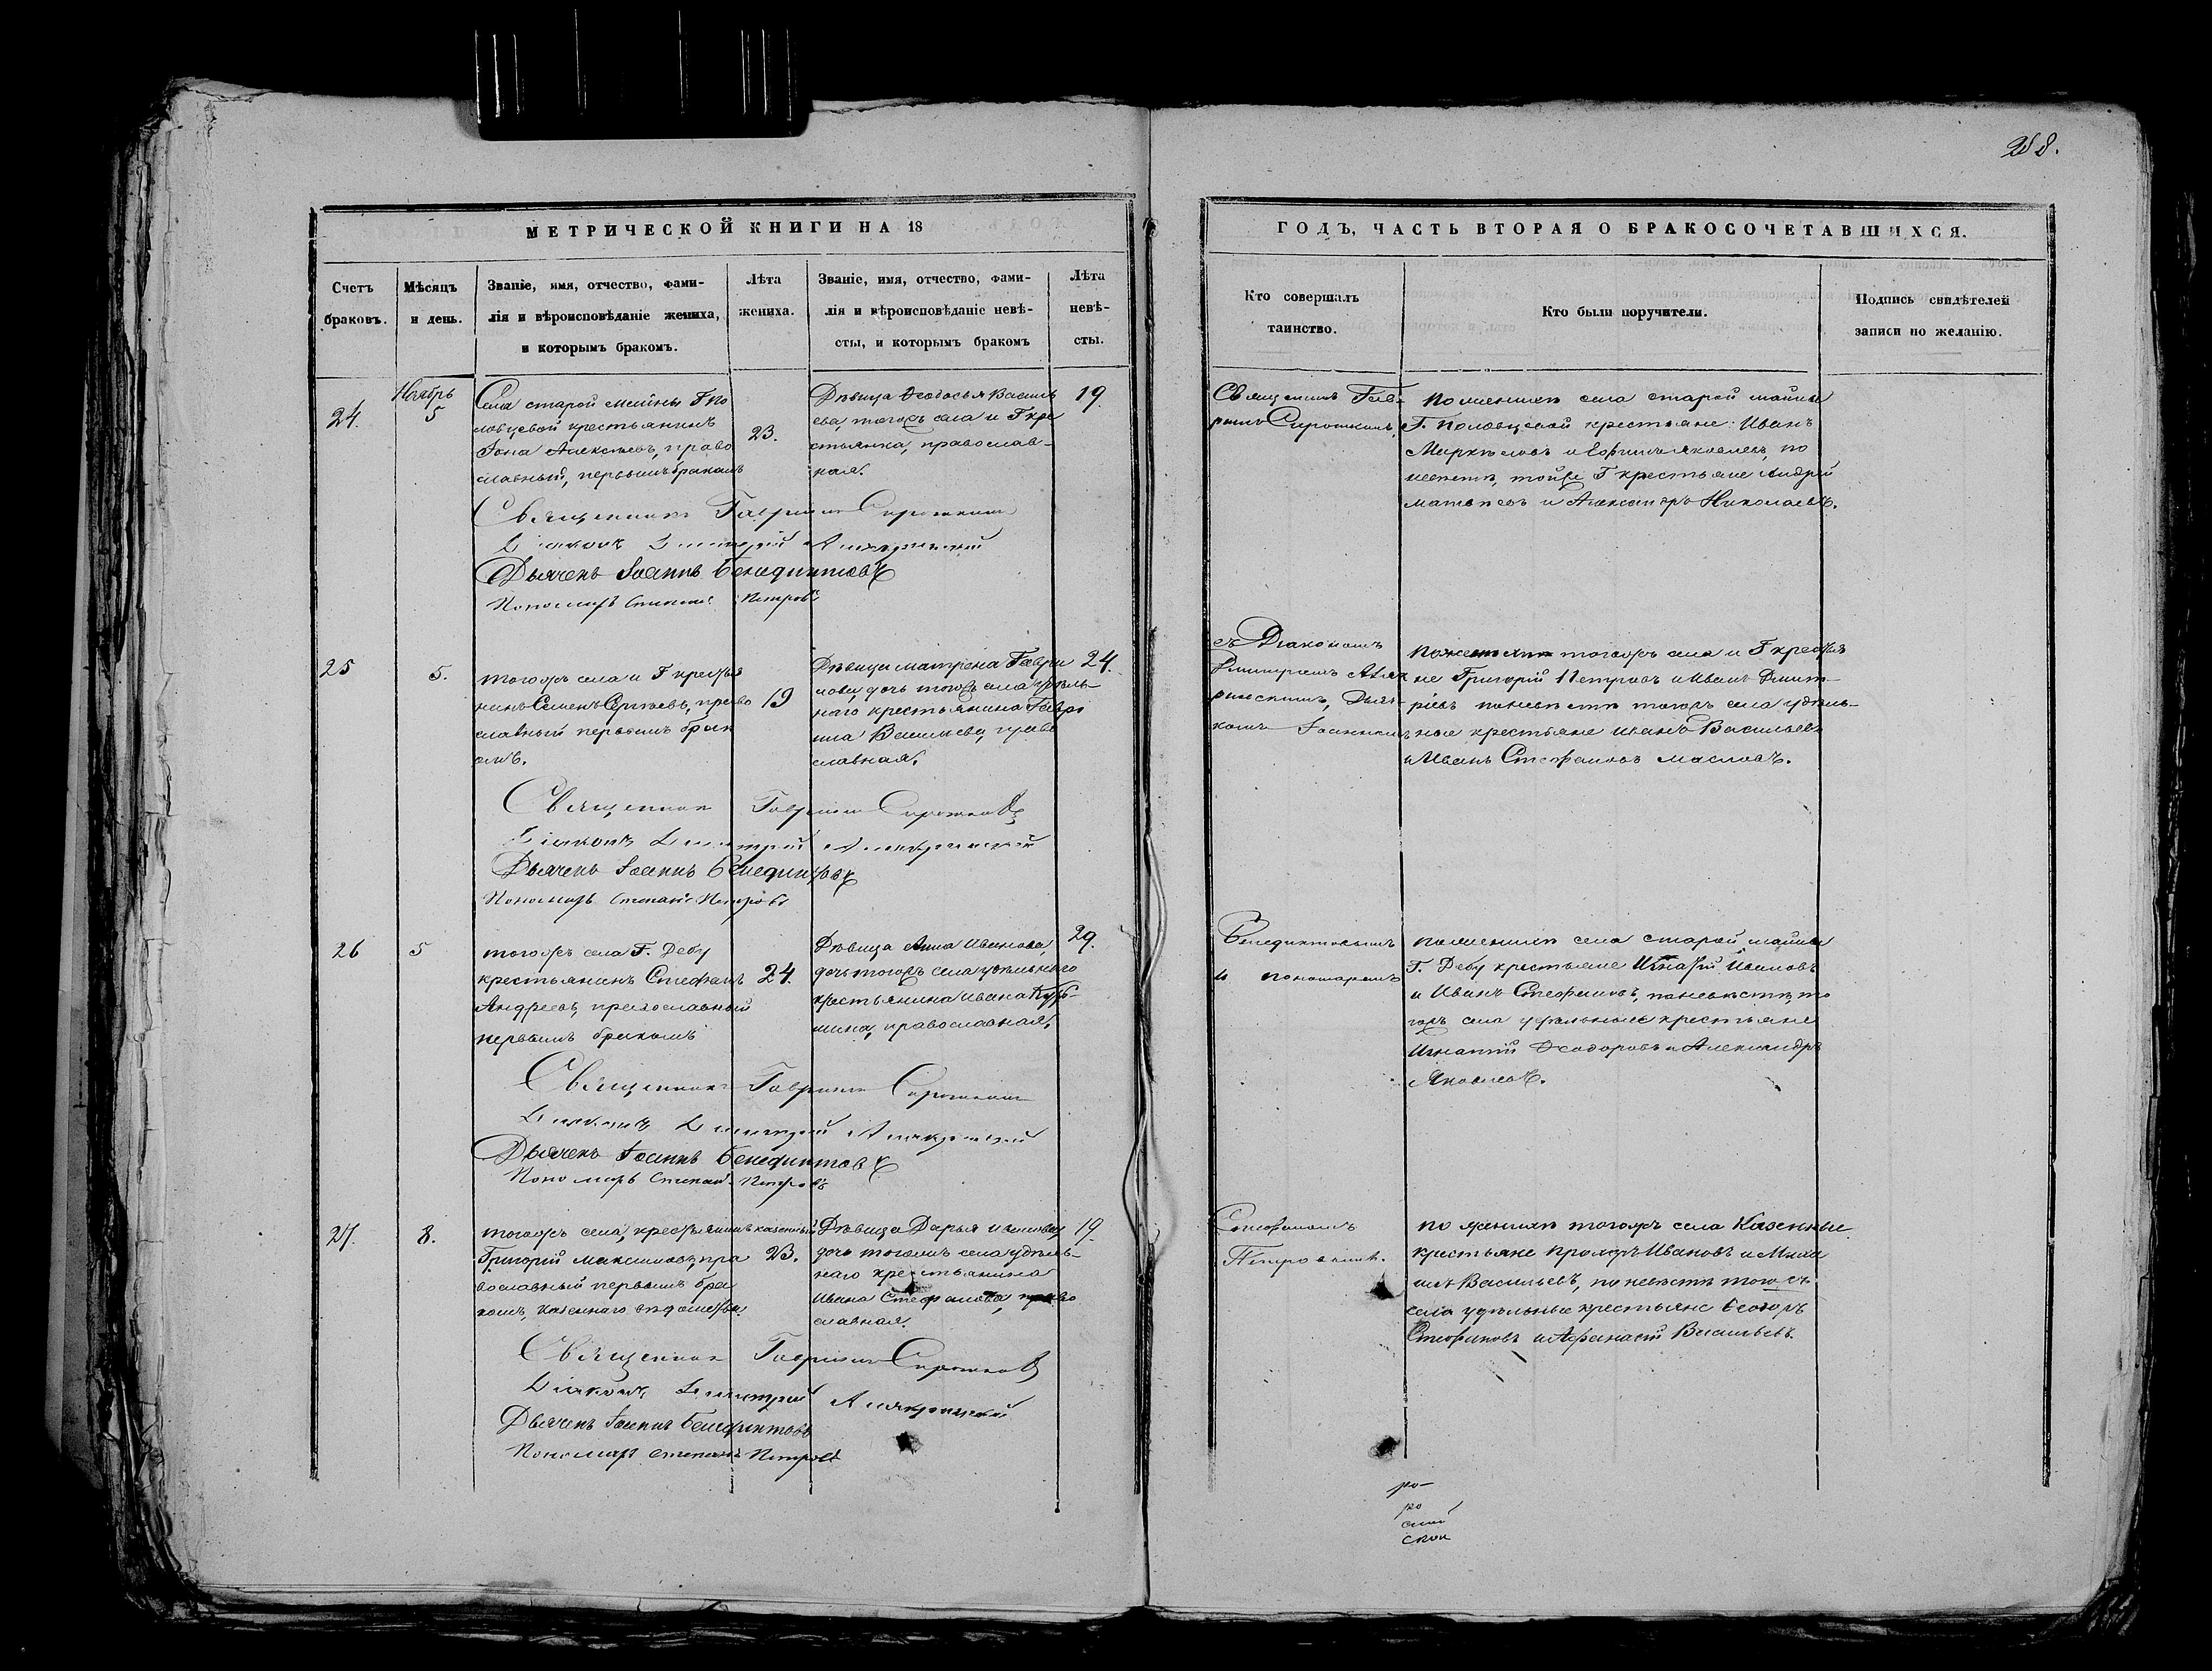 288.
МЕТРИЧЕСКОЙ КНИГИ НА 18
ГОДЪ, ЧАСТЬ ВТОРАЯ О БРАКОСОЧЕТАВШИХСЯ.
Счетъ
браковъ.
Мѣсяцъ
и день.
Званіе, имя, отчество, фами-
лія и вѣроисповѣданіе жениха,
и которымъ бракомъ.
Лѣта
жениха.
Званіе, имя, отчество, фами-
лія и вѣроисповѣданіе невѣ-
сты, и которымъ бракомъ
Лѣта
невѣ-
сты.
Кто совершалъ
таинство.
Кто были поручители.
Подпись свидѣтелей
записи по желанію.
24.
Ноябрь
5
Села старой майны Г. По
ловцевой крестьянинъ
Іона Алексѣевъ, право
славный, первымъ бракомъ
23.
Дѣвица Ѳеодосья Василь
ева, тогожъ села и Г кре
стьянка, православ-
ная.
19.
Священникъ Гав-
риилъ Сироткинъ,
По женихѣ села старой майны
Г. Половцевой крестьяне: Иванъ
и Ефимъ Яковлевъ, по
невѣстѣ, тойже Г крестьяне Андрей
Матвѣевъ и Александръ Николаевъ.
Священникъ Гавриилъ Сироткинъ
Діаконъ Димитрій
Дьячекъ Іоаннъ Бенедиктовъ
Пономарь Степанъ Петровъ
25
5.
тогожъ села и Г крестья
нинъ Семенъ Сергѣевъ, право
славный первымъ брак
омъ.
19
Дѣвица Матрена Гаври
лова, дочь тогожъ села удѣль-
наго крестьянина Гаври
ила Васильева, право
славная.
24.
съ Діакономъ
Димитріемъ
Дьяч-
комъ Іоанномъ
По женихѣ тогожъ села и Г крестья
не Григорій Петровъ и Иванъ Димит-
ріевъ по невѣстѣ тогожъ села удѣль-
ные крестьяне Иванъ Васильевъ
и Иванъ Стефановъ Масловъ.
Священникъ Гавриилъ Сироткинъ
Діаконъ Димитрій
Дьячекъ Іоаннъ Бенедиктовъ
Пономарь Степанъ Петровъ
26
5
тогожъ села Г. Дебу
крестьянинъ Стефанъ
Андреевъ, православный
первымъ бракомъ
24.
Дѣвица Анна Иванова,
дочь тогожъ села удѣльнаго
крестьянина Ивана Кузь-
мина, православная,
29.
Бенедиктовымъ
и пономаремъ
По женихѣ села старой майны
Г. Дебу крестьяне Игнатій Ивановъ
и Иванъ Стефановъ, по невѣстѣ, то
гожъ села удѣльные крестьяне
Игнатій Ѳеодоровъ и Александръ
Яковлевъ.
Священникъ Гавриилъ Сироткинъ
Діаконъ Димитрій
Дьячекъ Іоаннъ Бенедиктовъ
Пономарь Степанъ Петровъ
27.
8.
тогожъ села, крестьянинъ казенный
Григорій Максимовъ, пра
вославный первымъ бра
комъ, казеннаго вѣдомства.
23.
Дѣвица Дарья Иванова,
дочь тогожъ села удѣль-
наго крестьянина
Ивана Стефанова, право
славная.
19.
Стефаномъ
Петровымъ.
По женихѣ тогожъ села Казенные
крестьяне Прохоръ Ивановъ и Миха
илъ Васильевъ, по невѣстѣ того жъ
села удѣльные крестьяне Ѳеодоръ
Стефановъ и Афанасій Васильевъ.
Священникъ Гавриилъ Сироткинъ
Діаконъ Димитрій
Дьячекъ Іоаннъ Бенедиктовъ
Пономарь Степанъ Петровъ
ро-
ро
скои